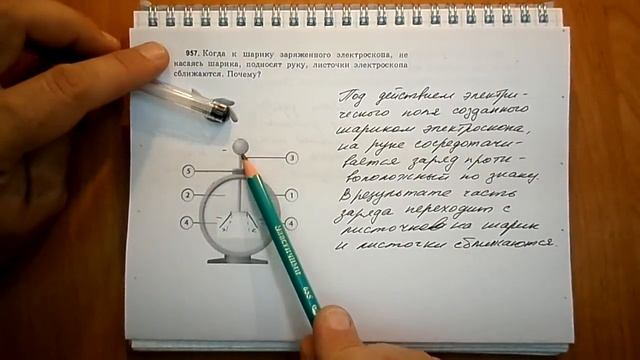 957. Когда к шарику заряженного электроскопа, не
касаясь шарика, подносят руку, листочки электроскопа
сближаются. Почему?
Под действием электри-
ческого поля созданного
шариком электроскопа,
на руке сосредотачи-
вается заряд проти-
воположный по знаку.
В результате часть
заряда переходит с
листочков на шарик
и листочки сближаются.
3
5
2
1
4
4